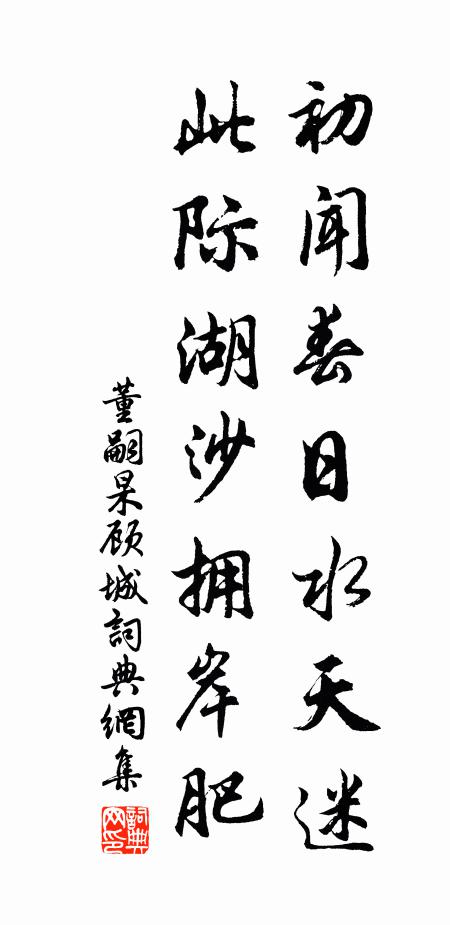 初闻春日水天迷
此际湖沙拥岸肥
董嗣杲顾城詞典網集
詞典网印